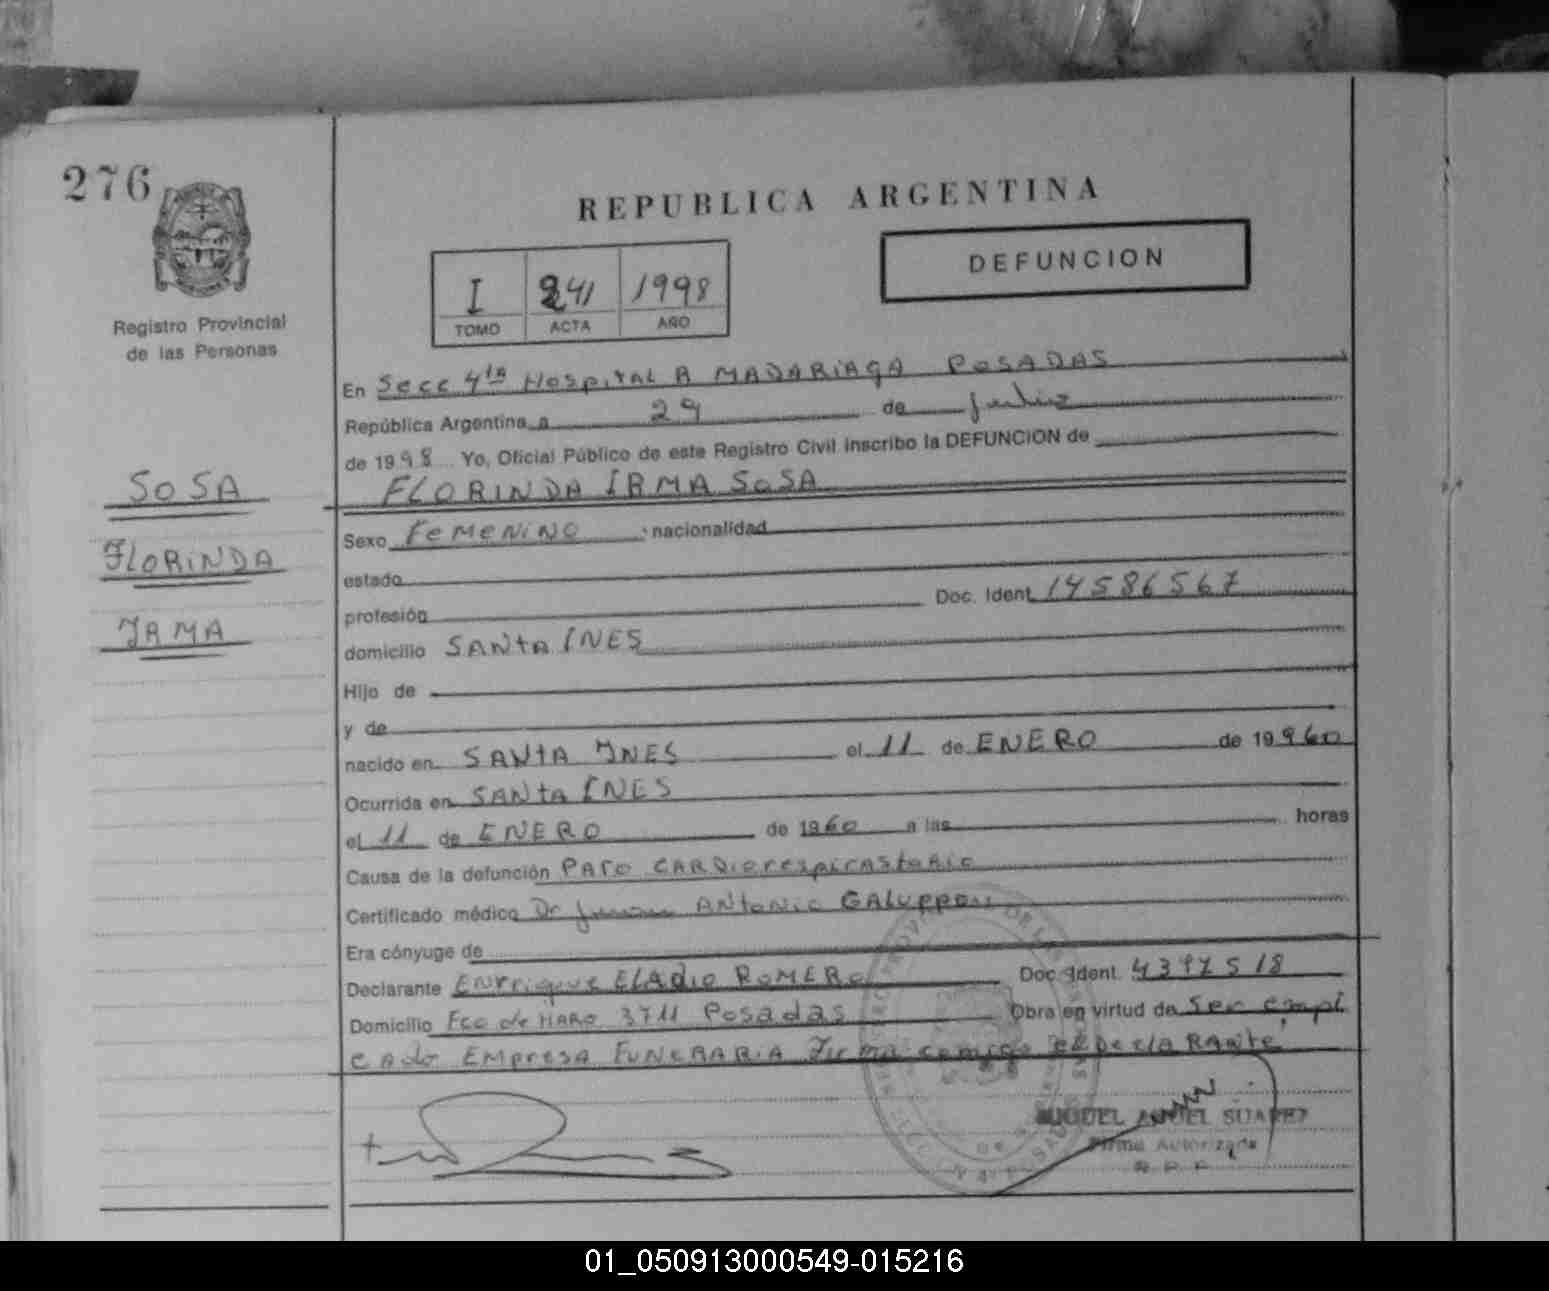 276
REPUBLICA ARGENTINA
DEFUNCION
I 241 1998
TOMO ACTA AÑO
Registro Provincial
de las Personas
En Secc 4ta Hospital R MADARiAGA POSADAS
República Argentina a 29 de Julio
de 1998 Yo, Oficial Público de este Registro Civil inscribo la DEFUNCION de
FLORINDA IRMA SOSA
SOSA
FLORINDA
IRMA
Sexo FeMeNiNO nacionalidad
estado
profesión Doc. Ident. 14586567
domicilio SANtA INES
Hijo de
y de
nacido en SANtA INES el 11 de ENERO de 19960
Ocurrida en SANtA INES
el 11 de ENERO de 1960 a las horas
Causa de la defunción PAro CARDiorespirastoRio
Certificado médico Dr Juan ANtonio
Era cónyuge de
Declarante ENrrique ELAdio ROMERO Doc. Ident. 4397518
Domicilio Fco de HARO 3711 Posadas Obra en virtud de Ser empl
eAdo EMPRESA FUNERARiA Firma conmigo el DeclaRANte
MIGUEL ANGEL SUAREZ
Firma Autorizada
R. P. P.
01_050913000549-015216